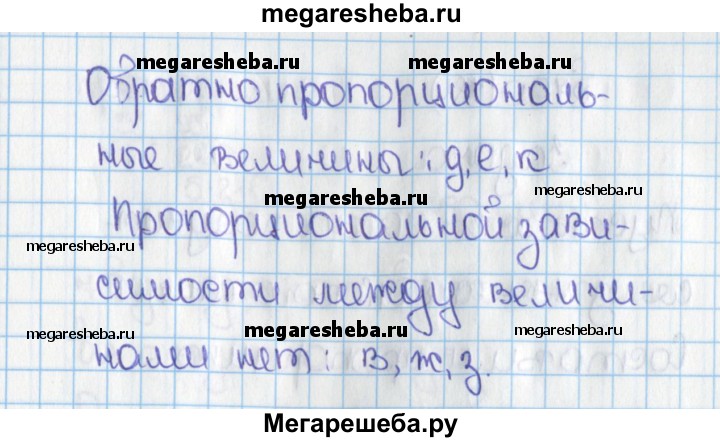 megaresheba.ru
megaresheba.ru megaresheba.ru
Обратно пропорциональ-
ные величины: д, е, к
megaresheba.ru megaresheba.ru
Пропорциональной зави-
megaresheba.ru
симости между величи-
megaresheba.ru megaresheba.ru megaresheba.ru
нами нет: в, ж, з.
Мегарешеба.ру